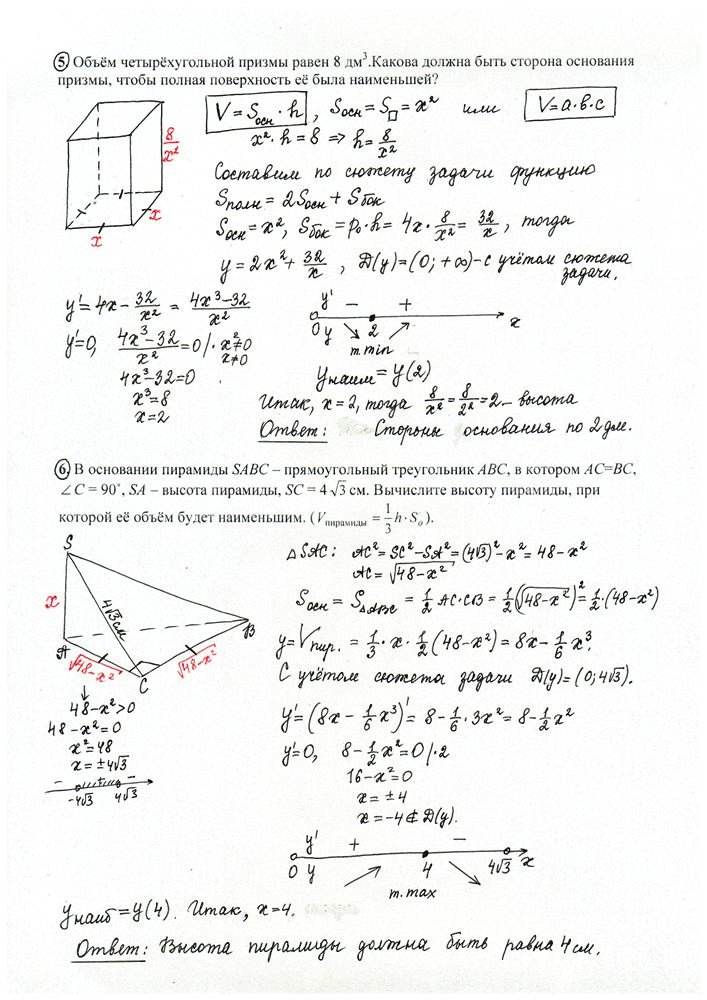 ⑤ Объём четырёхугольной призмы равен 8 дм³.Какова должна быть сторона основания
призмы, чтобы полная поверхность её была наименьшей?
V = Sосн · h , Sосн = S□ = x² или V = a·в·c
x² · h = 8 => h = 8/x²
8/x²
x
x
Составим по сюжету задачи функцию
Sполн = 2Sосн + Sбок
Sосн = x², Sбок = p₀·h = 4x · 8/x² = 32/x, тогда
y = 2x² + 32/x , D(y) = (0; +∞) – с учётом сюжета
задачи.
y' = 4x − 32/x² = (4x³−32)/x²
y'=0, (4x³−32)/x² = 0 /· x²≠0
x≠0
4x³−32=0
x³=8
x=2
y' − +
0 y 2 x
т.min
yнаим = y(2)
Итак, x=2, тогда 8/x² = 8/2² = 2 – высота
Ответ: Стороны основания по 2 дм.
⑥ В основании пирамиды SABC – прямоугольный треугольник ABC, в котором AC=BC,
∠C = 90˚, SA – высота пирамиды, SC = 4√3 см. Вычислите высоту пирамиды, при
которой её объём будет наименьшим. (Vпирамиды = 1/3 h · Sо).
S
x
4√3 см
A
B
C
√48−x²
√48−x²
↓
48−x²>0
48−x²=0
x²=48
x=±4√3
− + −
−4√3 4√3
△SAC: AC² = SC²−SA² = (4√3)²−x² = 48−x²
AC = √48−x²
Sосн = S△ABC = 1/2 AC·CB = 1/2(√48−x²)² = 1/2·(48−x²)
y = Vпир. = 1/3 · x · 1/2 (48−x²) = 8x − 1/6 x³.
С учётом сюжета задачи D(y) = (0; 4√3).
y' = (8x − 1/6 x³)' = 8 − 1/6 · 3x² = 8 − 1/2 x²
y'=0, 8 − 1/2 x² = 0 /·2
16−x²=0
x = ±4
x = −4 ∉ D(y).
y' + −
0 y 4 4√3 x
т.max
yнаиб = y(4). Итак, x=4.
Ответ: Высота пирамиды должна быть равна 4 см.